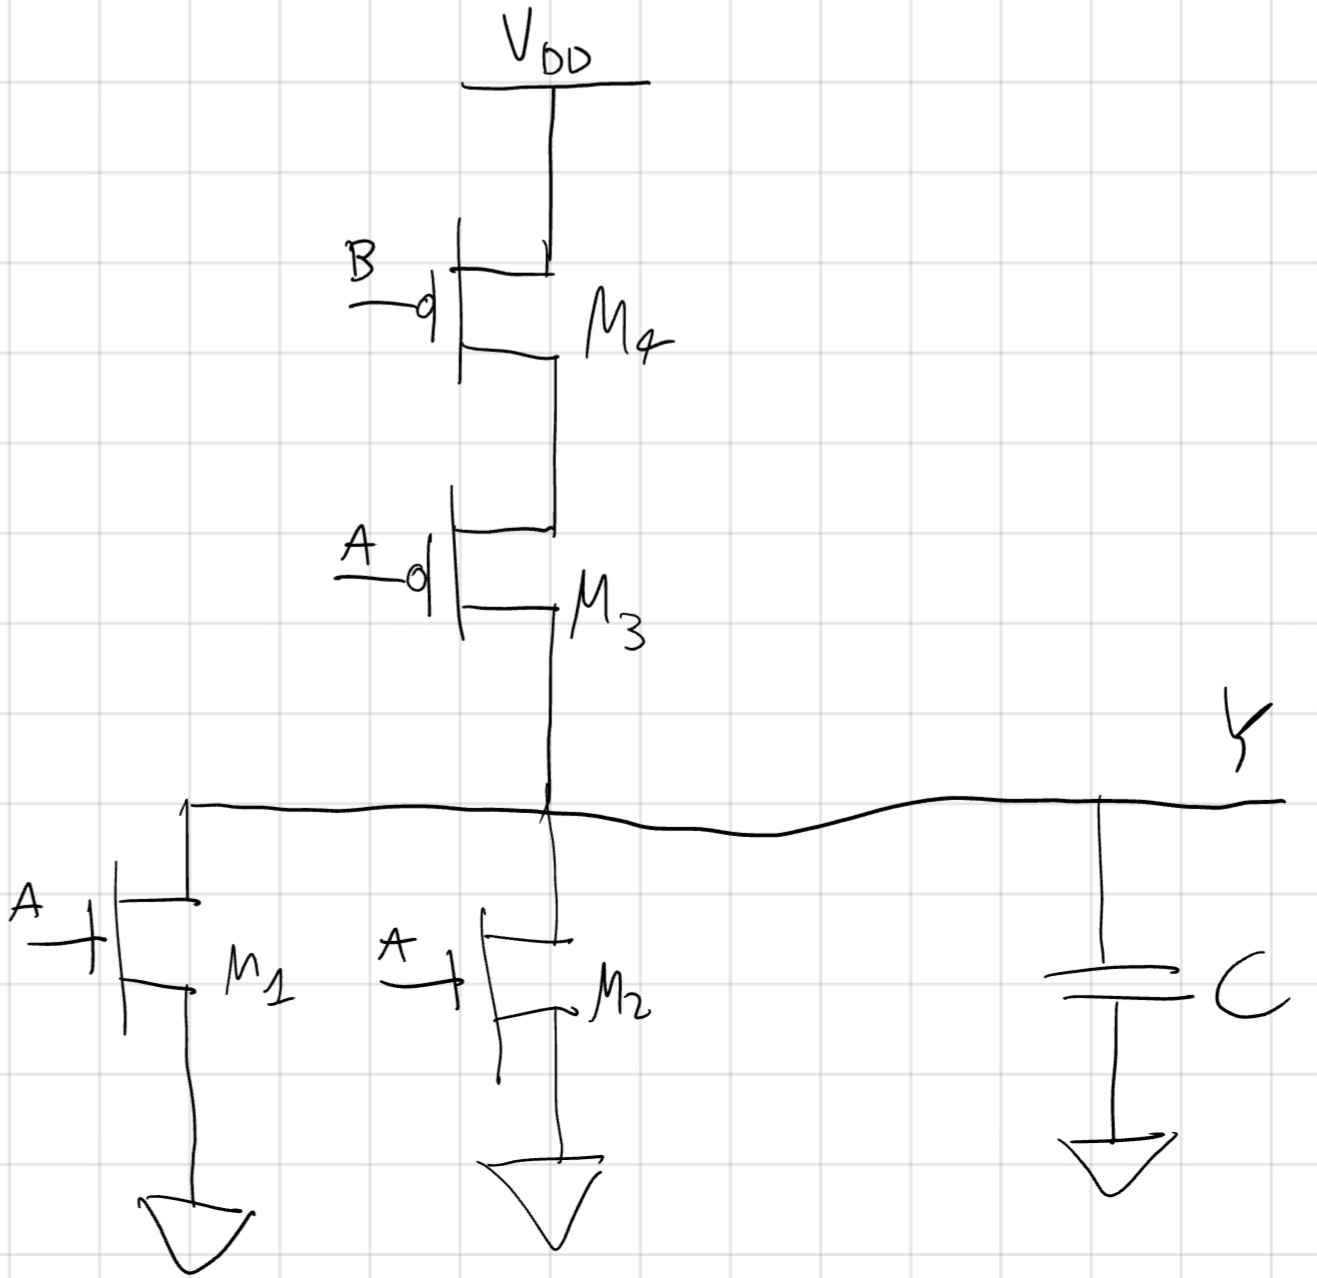 V_DD
B
M_4
A
M_3
Y
A
M_1
A
M_2
C